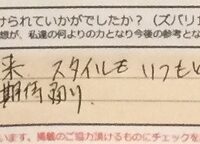 けられていかがでしたか？（ズバリ
想が、私達の何よりの力となり今後の参考とな
来 スタイルも いつもい
期待通り
います。掲載のご協力頂けるものにチェックを